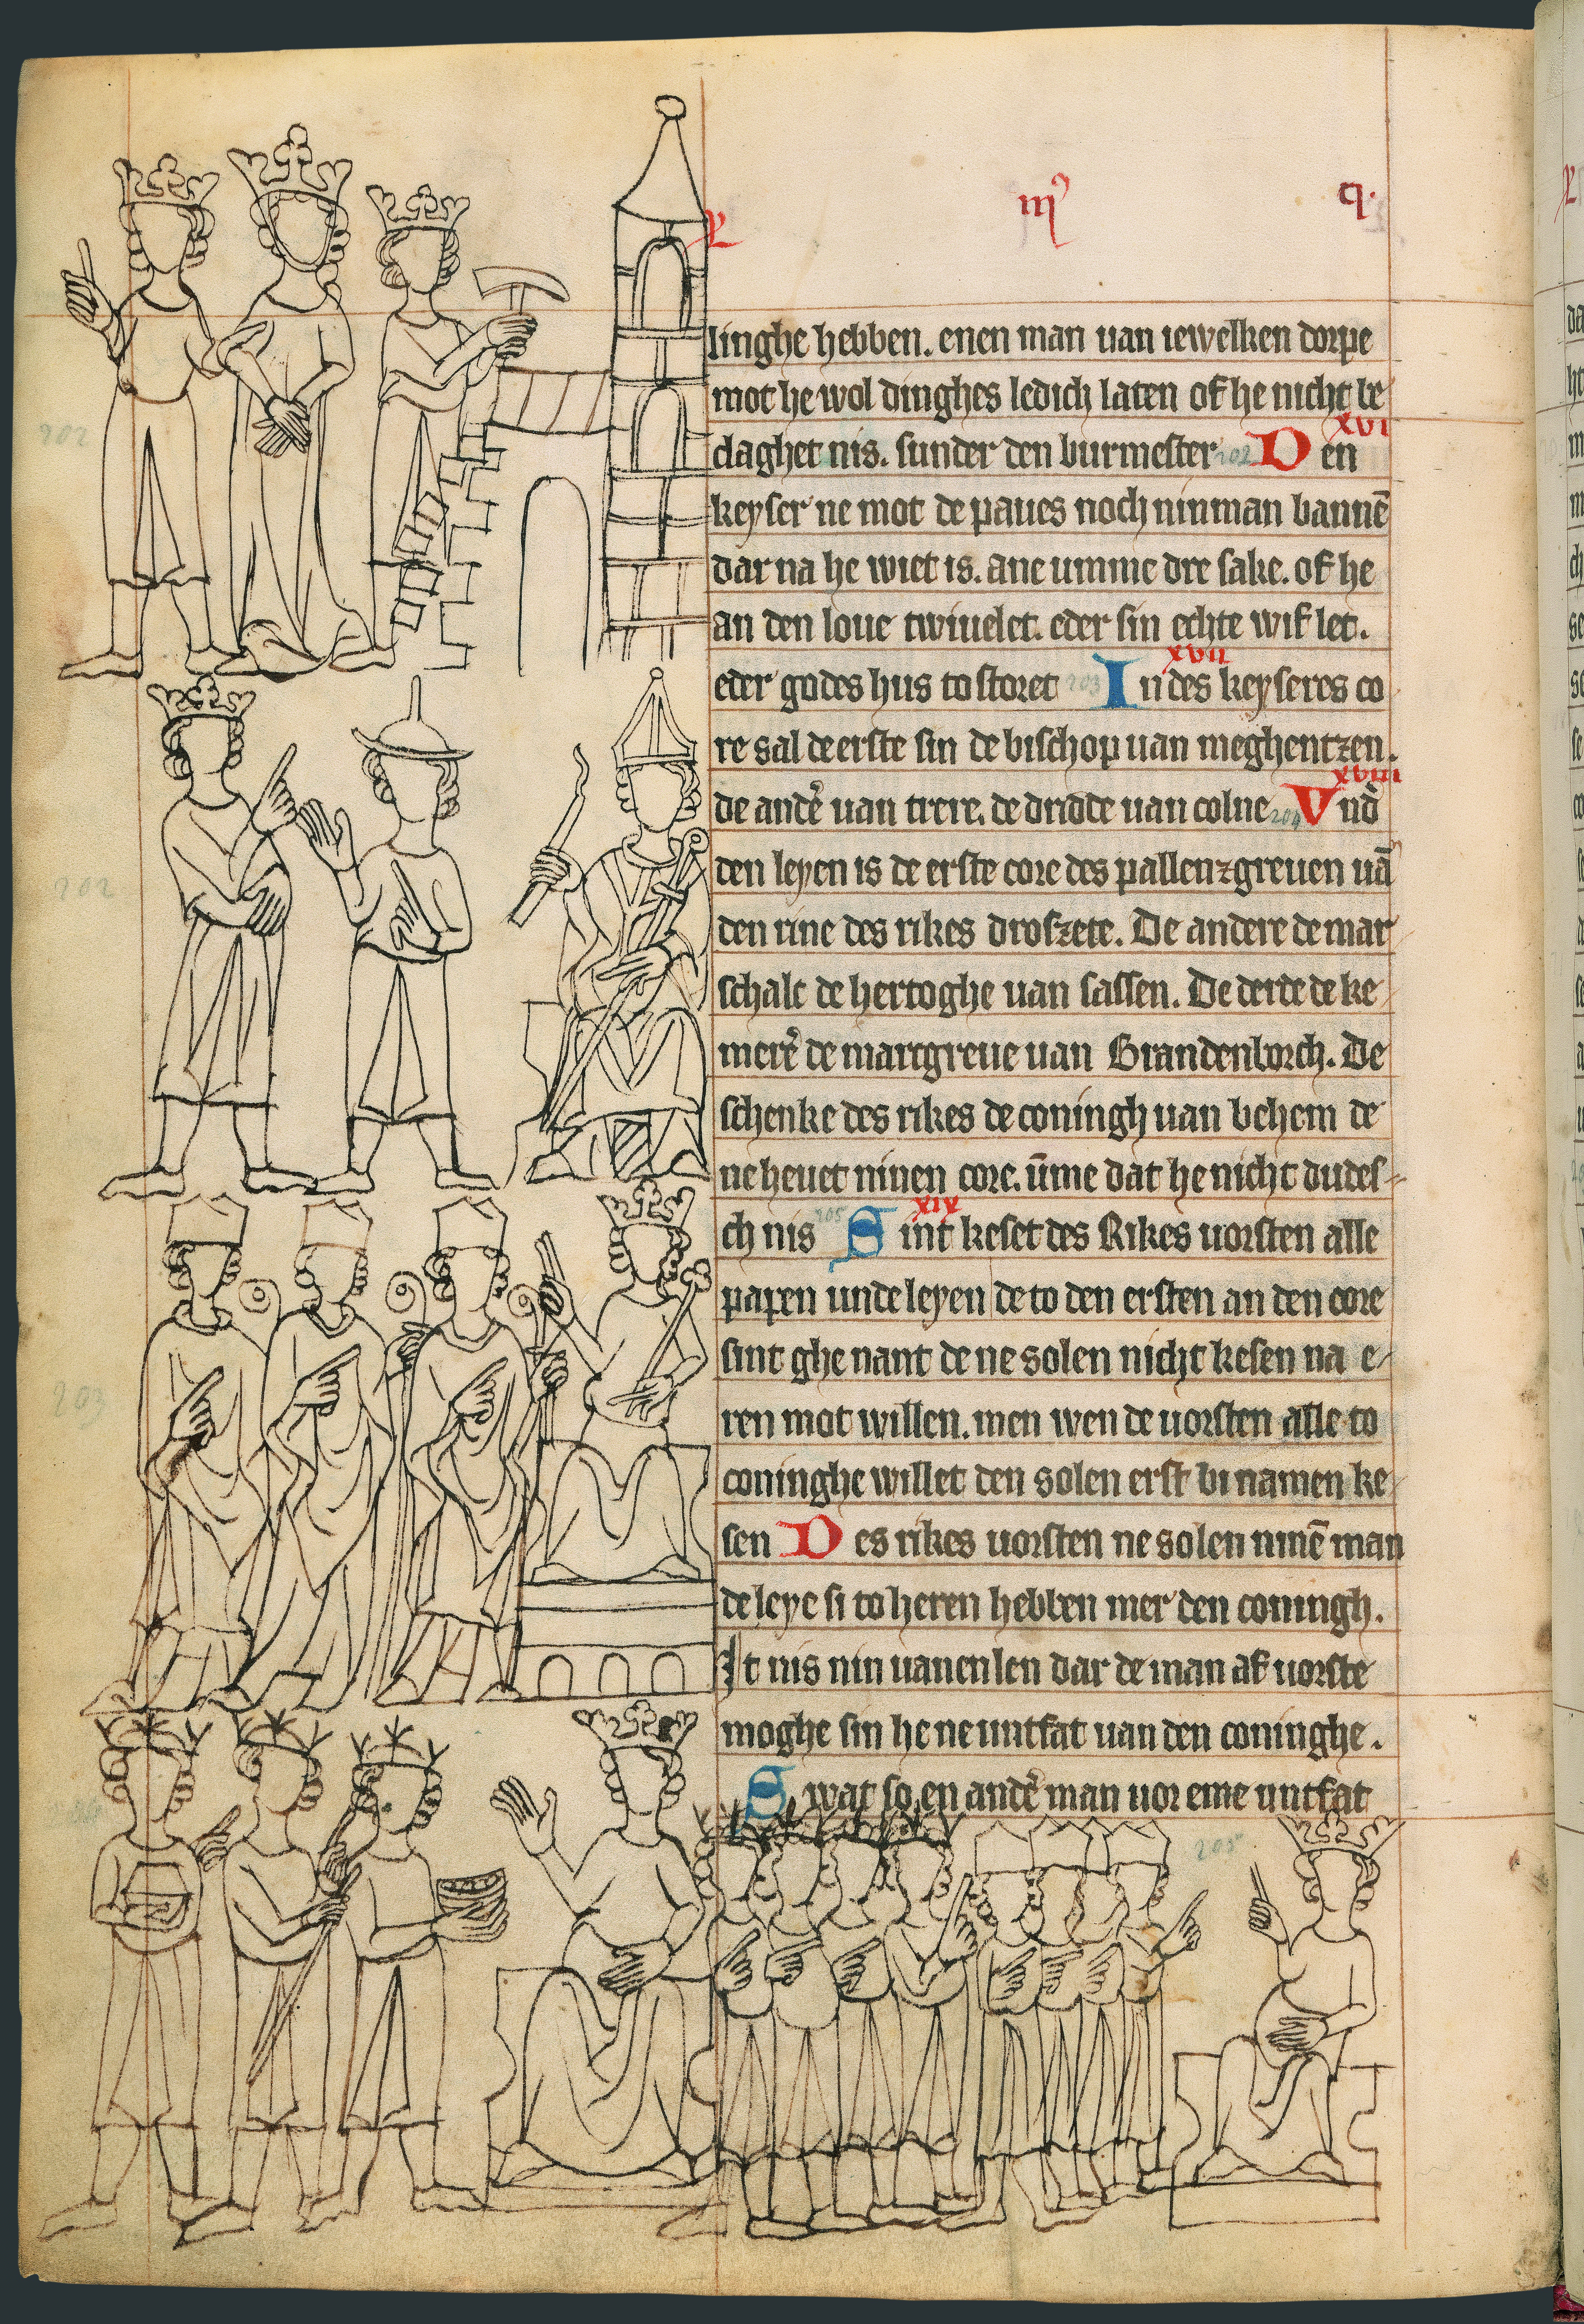 L mꝰ q.
linghe hebben. enen man uan iewelken dorpe
mot he wol dinghes ledich laten of he nicht be
claghet nis. sunder den burmester 202 Den xvi
keyser ne mot de paues noch ninman bannē
dar na he wiet is. ane umme dre sake. of he
an den loue twiuelet. eder sin echte wif let.
eder godes hus to storet 203 In des keyseres co xvii
re sal de erste sin de bischop uan meghentzen.
de andē uan trere. de dridde uan colne 204 Vnd̄ xviii
den leyen is de erste core des pallenzgreuen uā
den rine des rikes droszete. De andere de mar
schalc de hertoghe uan sassen. De derde de ke
merē de marcgreue uan Brandenborch. De
schenke des rikes de coningh uan behem de
ne heuet ninen core. ūme dat he nicht dudes
ch nis 205 Sint keset des Rikes uorsten alle xix
papen unde leyen de to den ersten an den core
sint ghe nant de ne solen nicht kesen na e
ren mot willen. men wen de uorsten alle to
coninghe willet den solen erst bi namen ke
sen Des rikes uorsten ne solen ninē man
de leye si to heren hebben mer den coningh.
It nis nin uanenlen dar de man af uorste
moghe sin he ne untfat uan den coninghe.
Swat so en andē man uor eme untfat
202
202
203
205